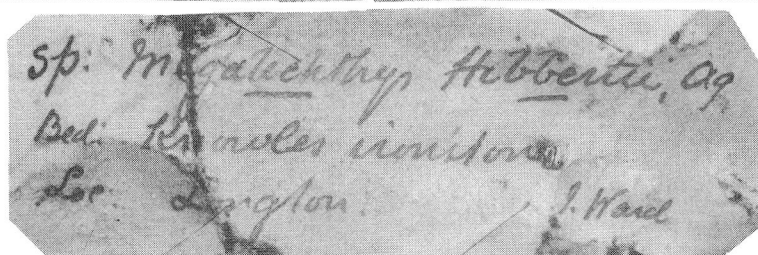 Sp: Megalichthys Hibberti, Ag
Bed: Knowles ironstone
Loc Longton. J. Ward